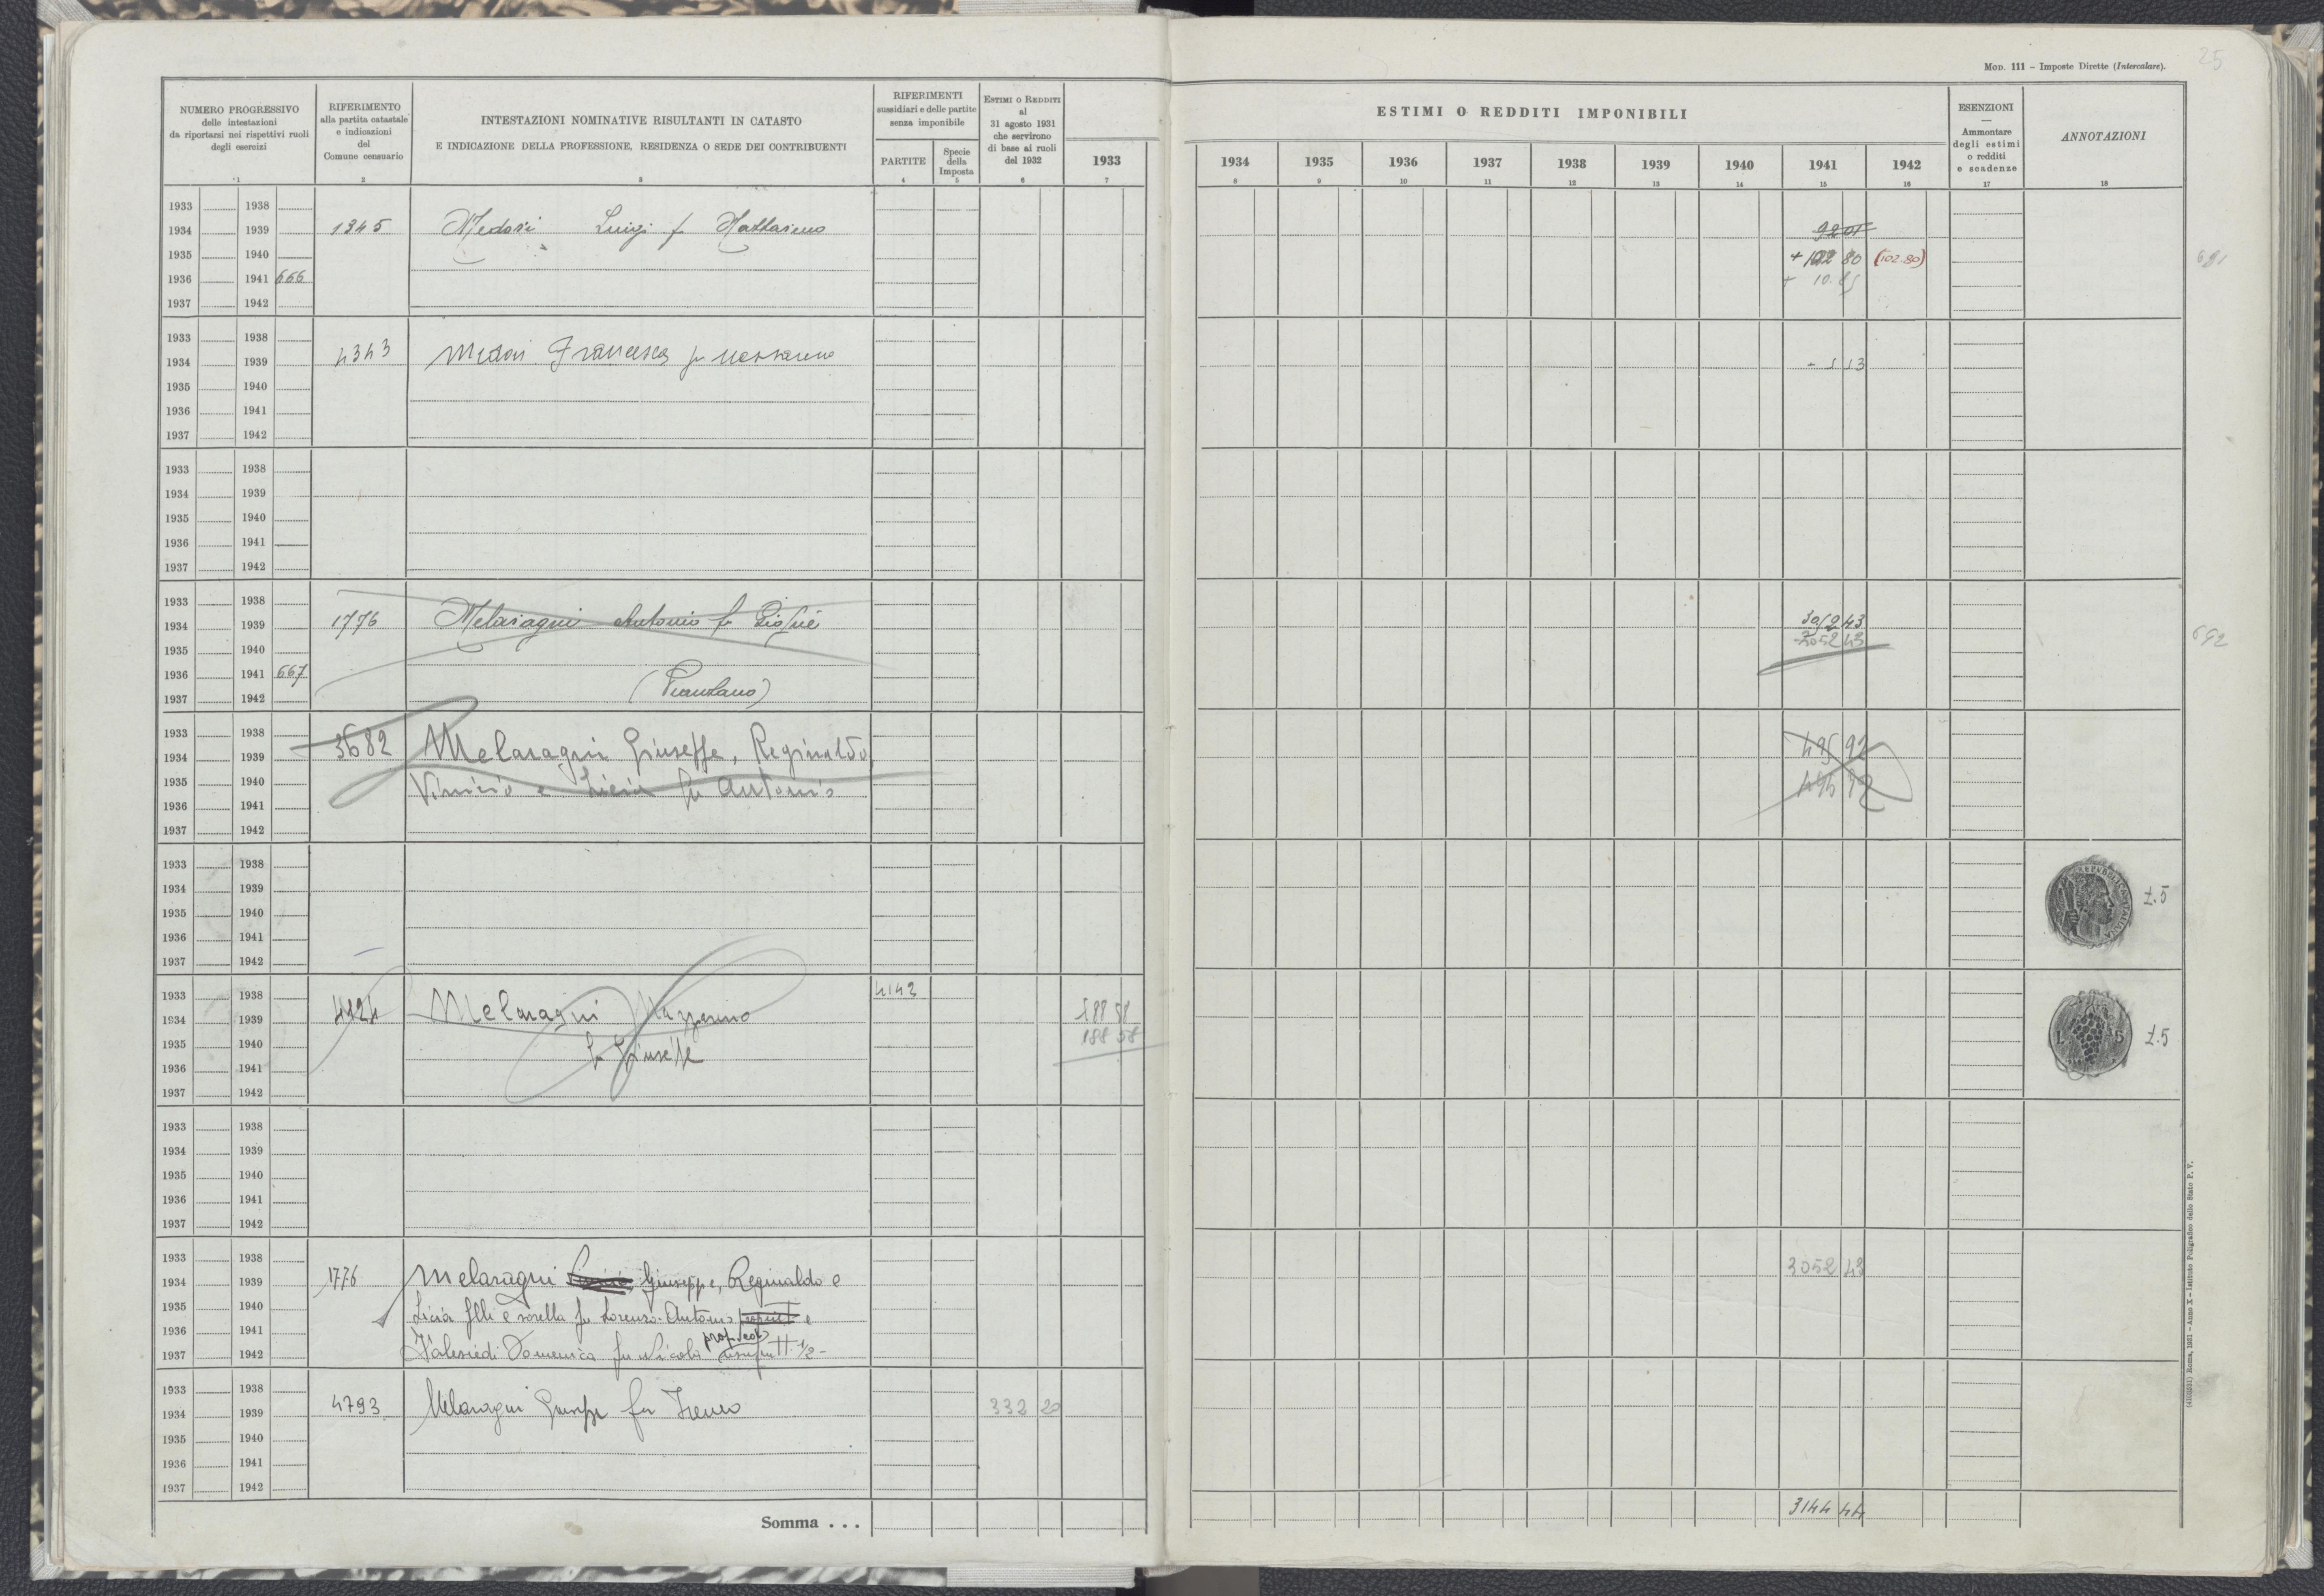 25
MOD. 111 – Imposte Dirette (Intercalare).
NUMERO PROGRESSIVO
delle intestazioni
da riportarsi nei rispettivi ruoli
degli esercizi
1
RIFERIMENTO
alla partita catastale
e indicazioni
del
Comune censuario
2
INTESTAZIONI NOMINATIVE RISULTANTI IN CATASTO
E INDICAZIONE DELLA PROFESSIONE, RESIDENZA O SEDE DEI CONTRIBUENTI
3
RIFERIMENTI
sussidiari e delle partite
senza imponibile
PARTITE
4
Specie
della
Imposta
5
ESTIMI O REDDITI
al
31 agosto 1931
che servirono
di base ai ruoli
del 1932
6
1933
7
ESTIMI O REDDITI IMPONIBILI
1934 1935 1936 1937 1938 1939 1940 1941 1942
8 9 10 11 12 13 14 15 16
ESENZIONI
—
Ammontare
degli estimi
o redditi
e scadenze
17
ANNOTAZIONI
18
1933 1938
1934 1939 1345 Medori Luigi f Mattarino 9201
1935 1940 + 102 80 (102.80)
1936 1941 666 + 10.
1937 1942
1933 1938
1934 1939 4343 Medori Francesca fu 1 13
1935 1940
1936 1941
1937 1942
1933 1938
1934 1939
1935 1940
1936 1941
1937 1942
1933 1938
1934 1939 1776 Melaragni Antonio fu Giosuè 3052 43
1935 1940 3052 43
1936 1941 667
1937 1942 (Piansano)
1933 1938
1934 1939 3682 Melaragni Giuseppe, Reginaldo 92
1935 1940 Vinicio e Licia fu Antonio
1936 1941
1937 1942
1933 1938
1934 1939 REPVBBLICA ITALIANA £.5
1935 1940
1936 1941
1937 1942
1933 1938 4142
1934 1939 4124 Melaragni Nazzareno 188 58
1935 1940 fu Giuseppe 188 58 L 5 £.5
1936 1941
1937 1942
1933 1938
1934 1939
1935 1940
1936 1941
1937 1942
1933 1938
1934 1939 1776 Melaragni Giuseppe, Reginaldo e 3052 43
1935 1940 Licia flli e sorella fu Lorenzo-Antonio e
1936 1941
1937 1942 Domenica fu Nicola 1/2-
1933 1938
1934 1939 4793 Melaragni Giuseppe fu Ireneo 332 20
1935 1940
1936 1941
1937 1942
Somma . . . 3144 44
Roma, 1931 – Anno X – Istituto Poligrafico dello Stato P. V.